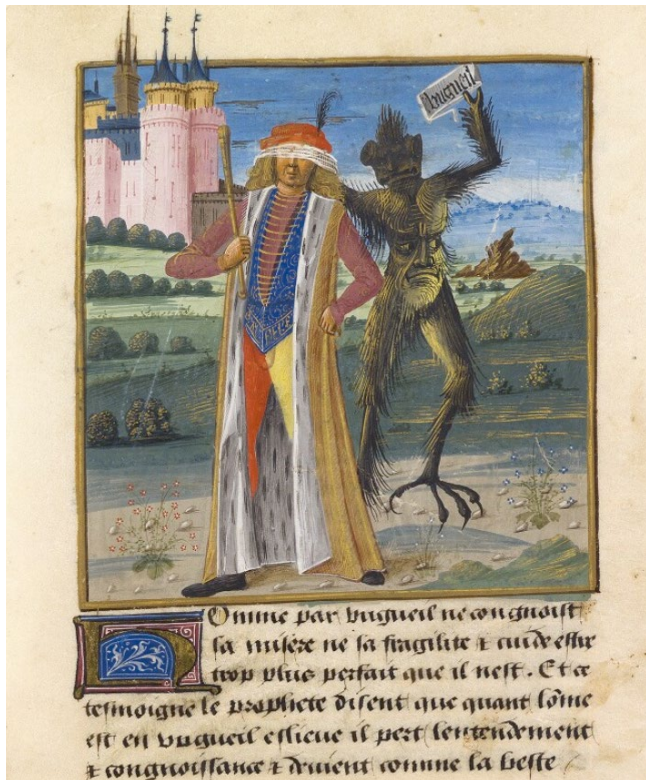 Orgueil
Omme par orgueil ne congnoist
sa misere ne sa fragilite & cuide estre
trop plus perfait que il nest. Et ce
tesmoigne le prophete disent que quant lõme
est en orgueil esleue il pert lentendement
& congnoissance & deuient comme la beste